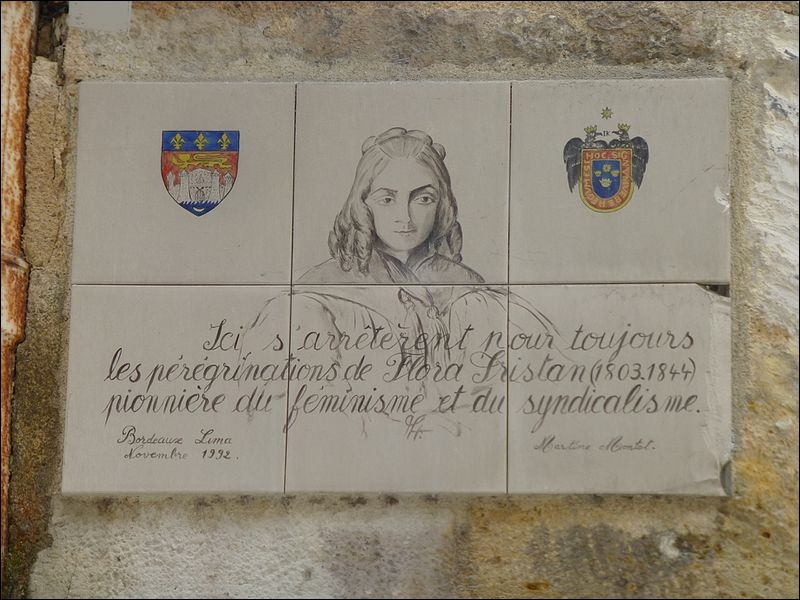 IK
HOC SIGNUM
Ici s'arrêtèrent pour toujours
les pérégrinations de Flora Tristan (1803.1844)
pionnière du féminisme et du syndicalisme.
Bordeaux Lima
Novembre 1992.
Martine Montel.